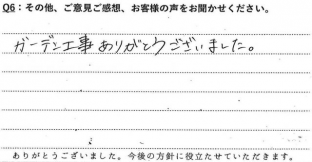 Q6：その他、ご意見ご感想、お客様の声をお聞かせください。
ガーデン工事ありがとうございました。
ありがとうございました。今後の方針に役立たせていただきます。